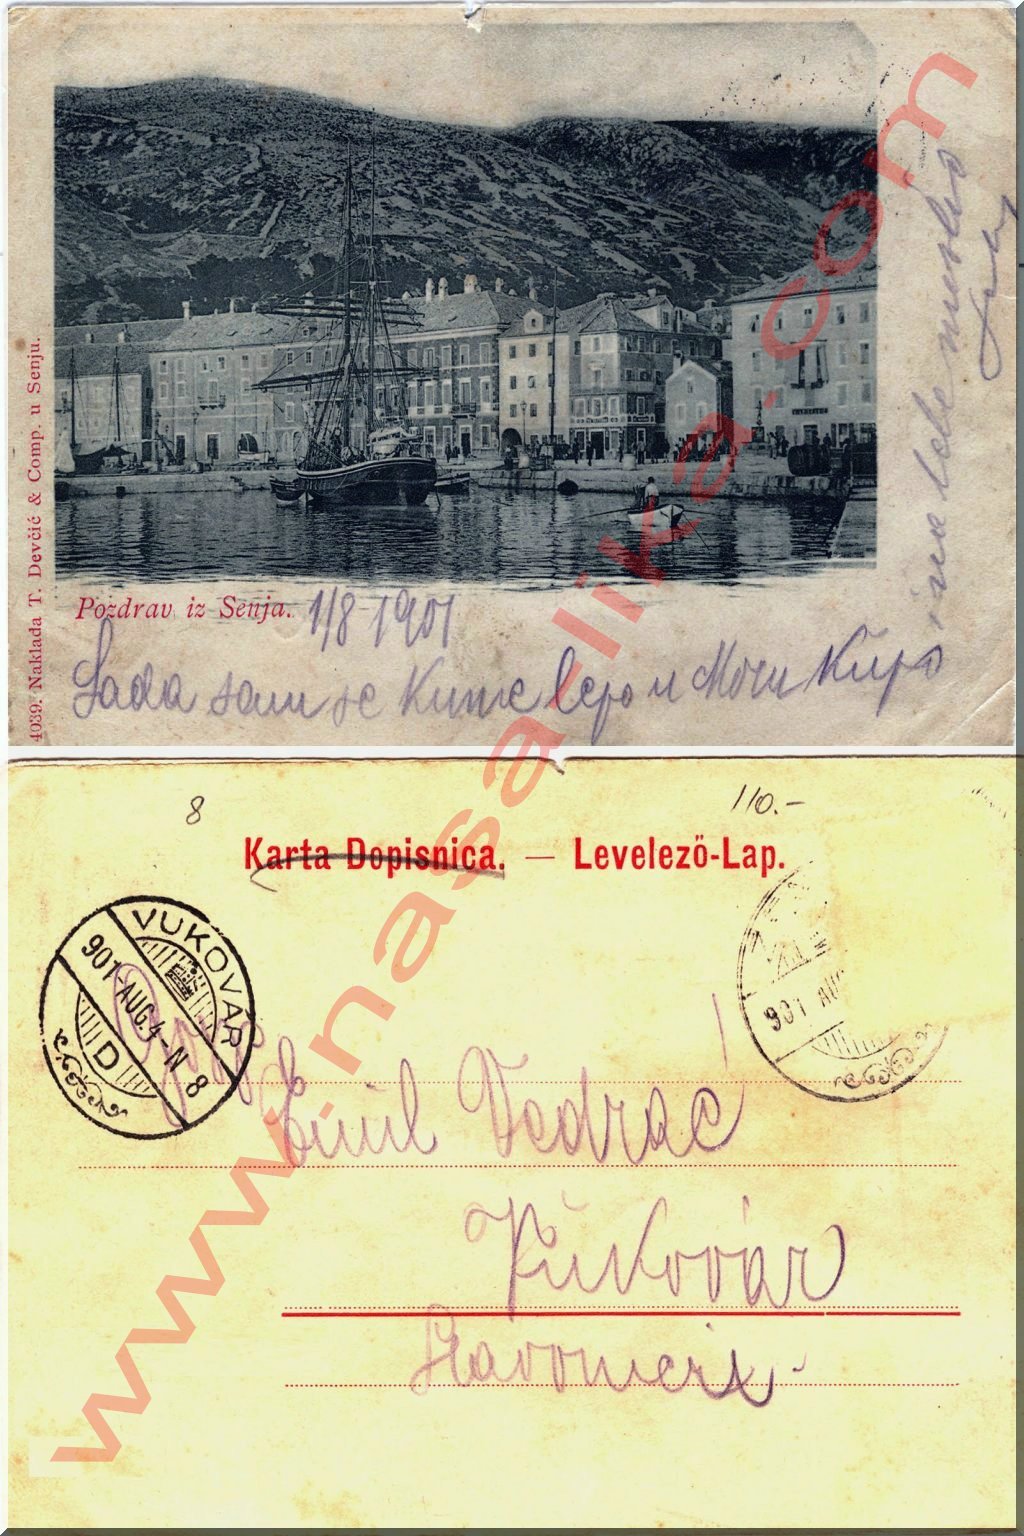 4039. Naklada T. Devčić & Comp. u Senju.
Pozdrav iz Senja.
1/8 1901
Sada sam se Kume lepo u Moru Kupo
i na tebe
8
110.-
Karta Dopisnica. — Levelező-Lap.
VUKOVÁR
901-AUG.4-N 8
D
901 AUG
Emil Vedrac
Vukovár
Slavonien
www.nasalika.com